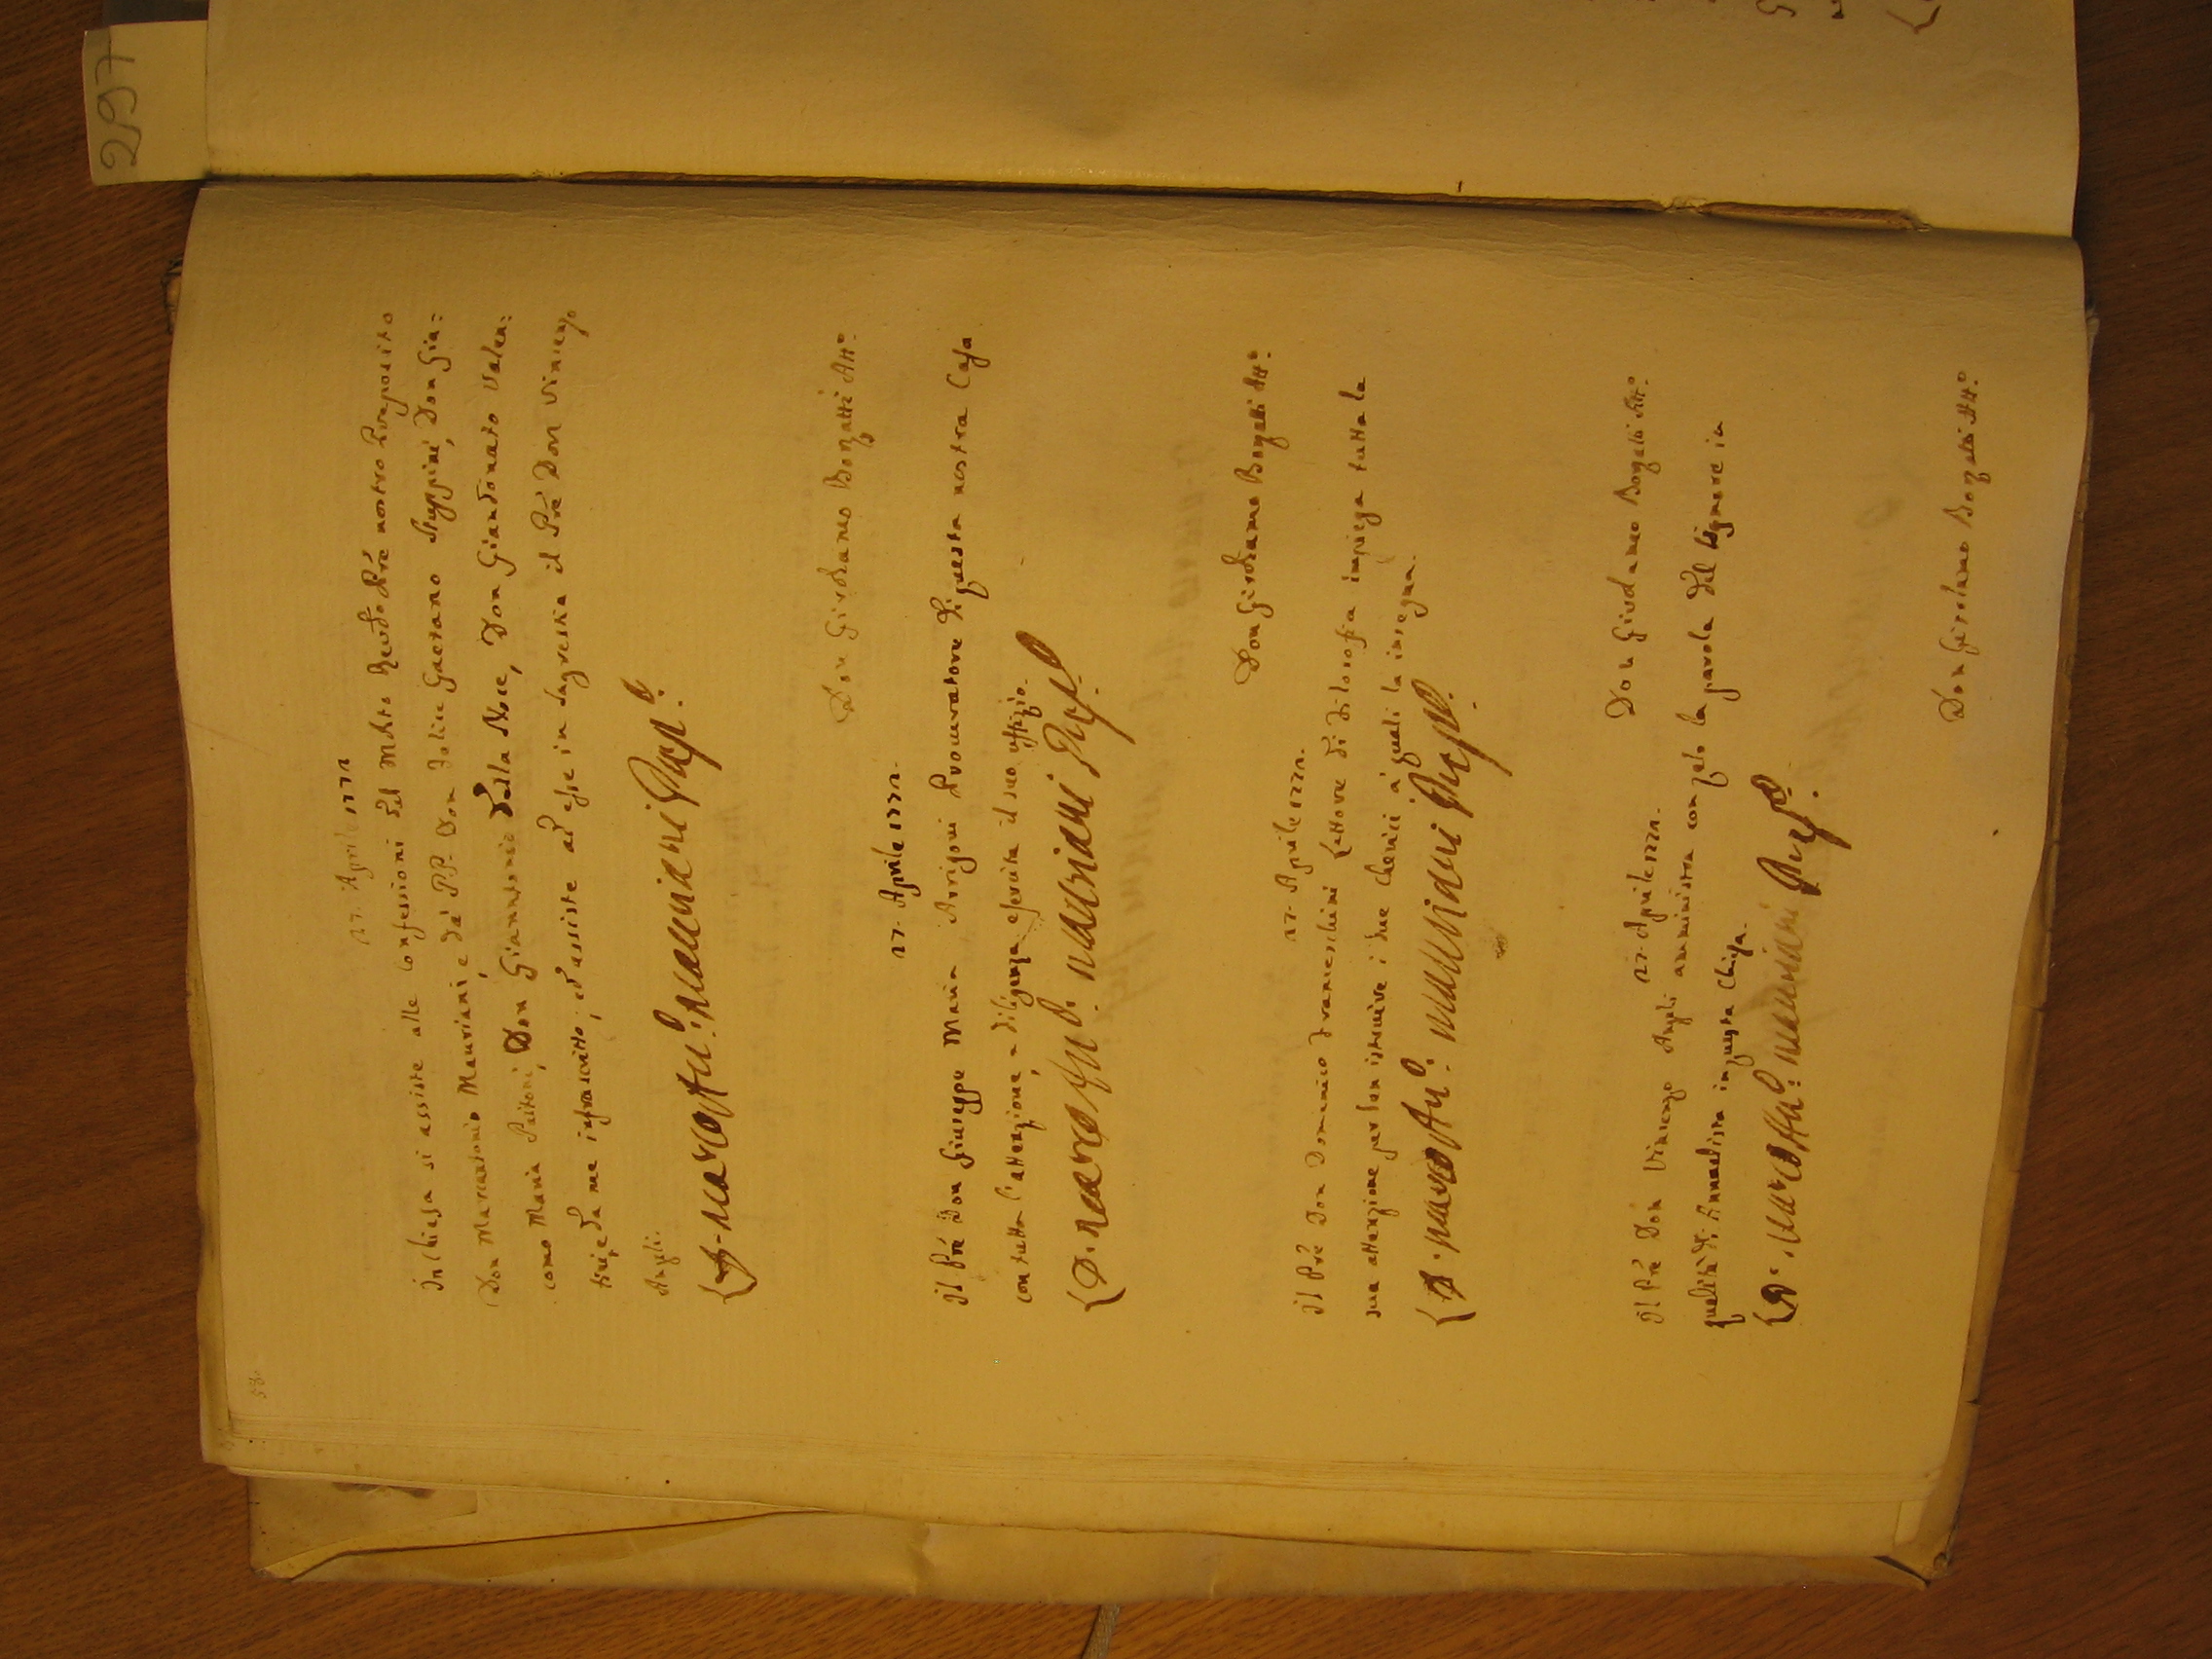 297
530
27. Aprile 1772
In Chiesa si assiste alle confessioni dal Mlto Revdo Pre nostro Preposito
Don Marcantonio Mauriani, e da' PP. Don Felice Gaetano Stuppini, Don Gia=
como Maria Paitoni, Don Giannantonio Dalla Noce, Don Giandonato Valen:
trie da me infrascritto; ed assiste ad esse in sagrestia il Pre Don Vincenzo
Angeli.
{D. Marco Anto: Mauriani Prepto.
Don Girolamo Bonzatti Atto.
27. Aprile 1772.
Il Pre Don Giuseppe Maria Arrigoni Procuratore di questa nostra Casa
con tutta l'attenzione, e diligenza esercita il suo uffizio.
{D. Marco Anto: Mauriani Prepto.
Don Girolamo Bonzatti Atto.
27. Aprile 1772.
Il Pre Don Domenico Franceschini Lettore di Filosofia impiega tutta la
sua attenzione per ben istruire i due Chierici a' quali la insegna.
{D. Marco Anto: Mauriani Prepto.
Don Girolamo Bonzatti Atto.
27. Aprile 1772.
Il Pre Don Vincenzo Angeli amministra con zelo la parola del Signore in
qualità di Annualista in questa Chiesa.
{D. Marco Anto: Mauriani Prepto.
Don Girolamo Bonzatti Atto.